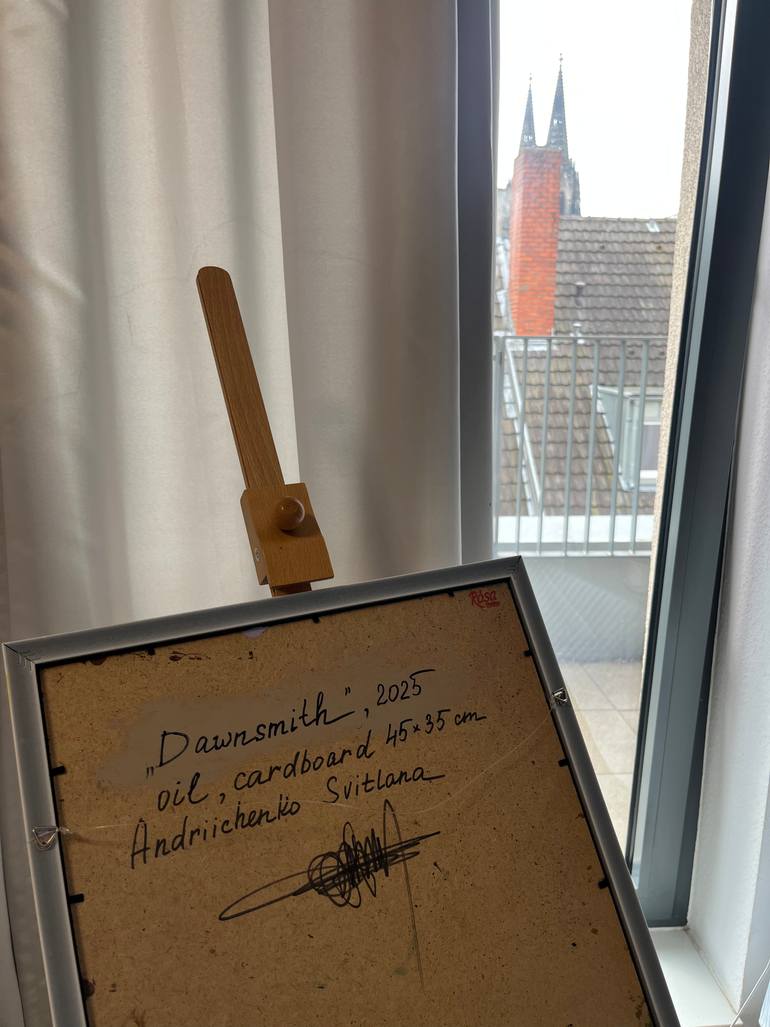 Rósa
„Dawnsmith", 2025
oil, cardboard 45×35 cm
Andriichenko Svitlana